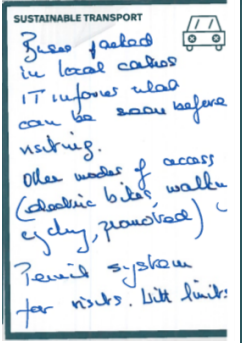 SUSTAINABLE TRANSPORT
Buses parked
in local
IT informs what
can be seen before
visiting.
Other modes of access
(electric bikes, walking
cycling, promoted)
Permit system
for visits. With limits